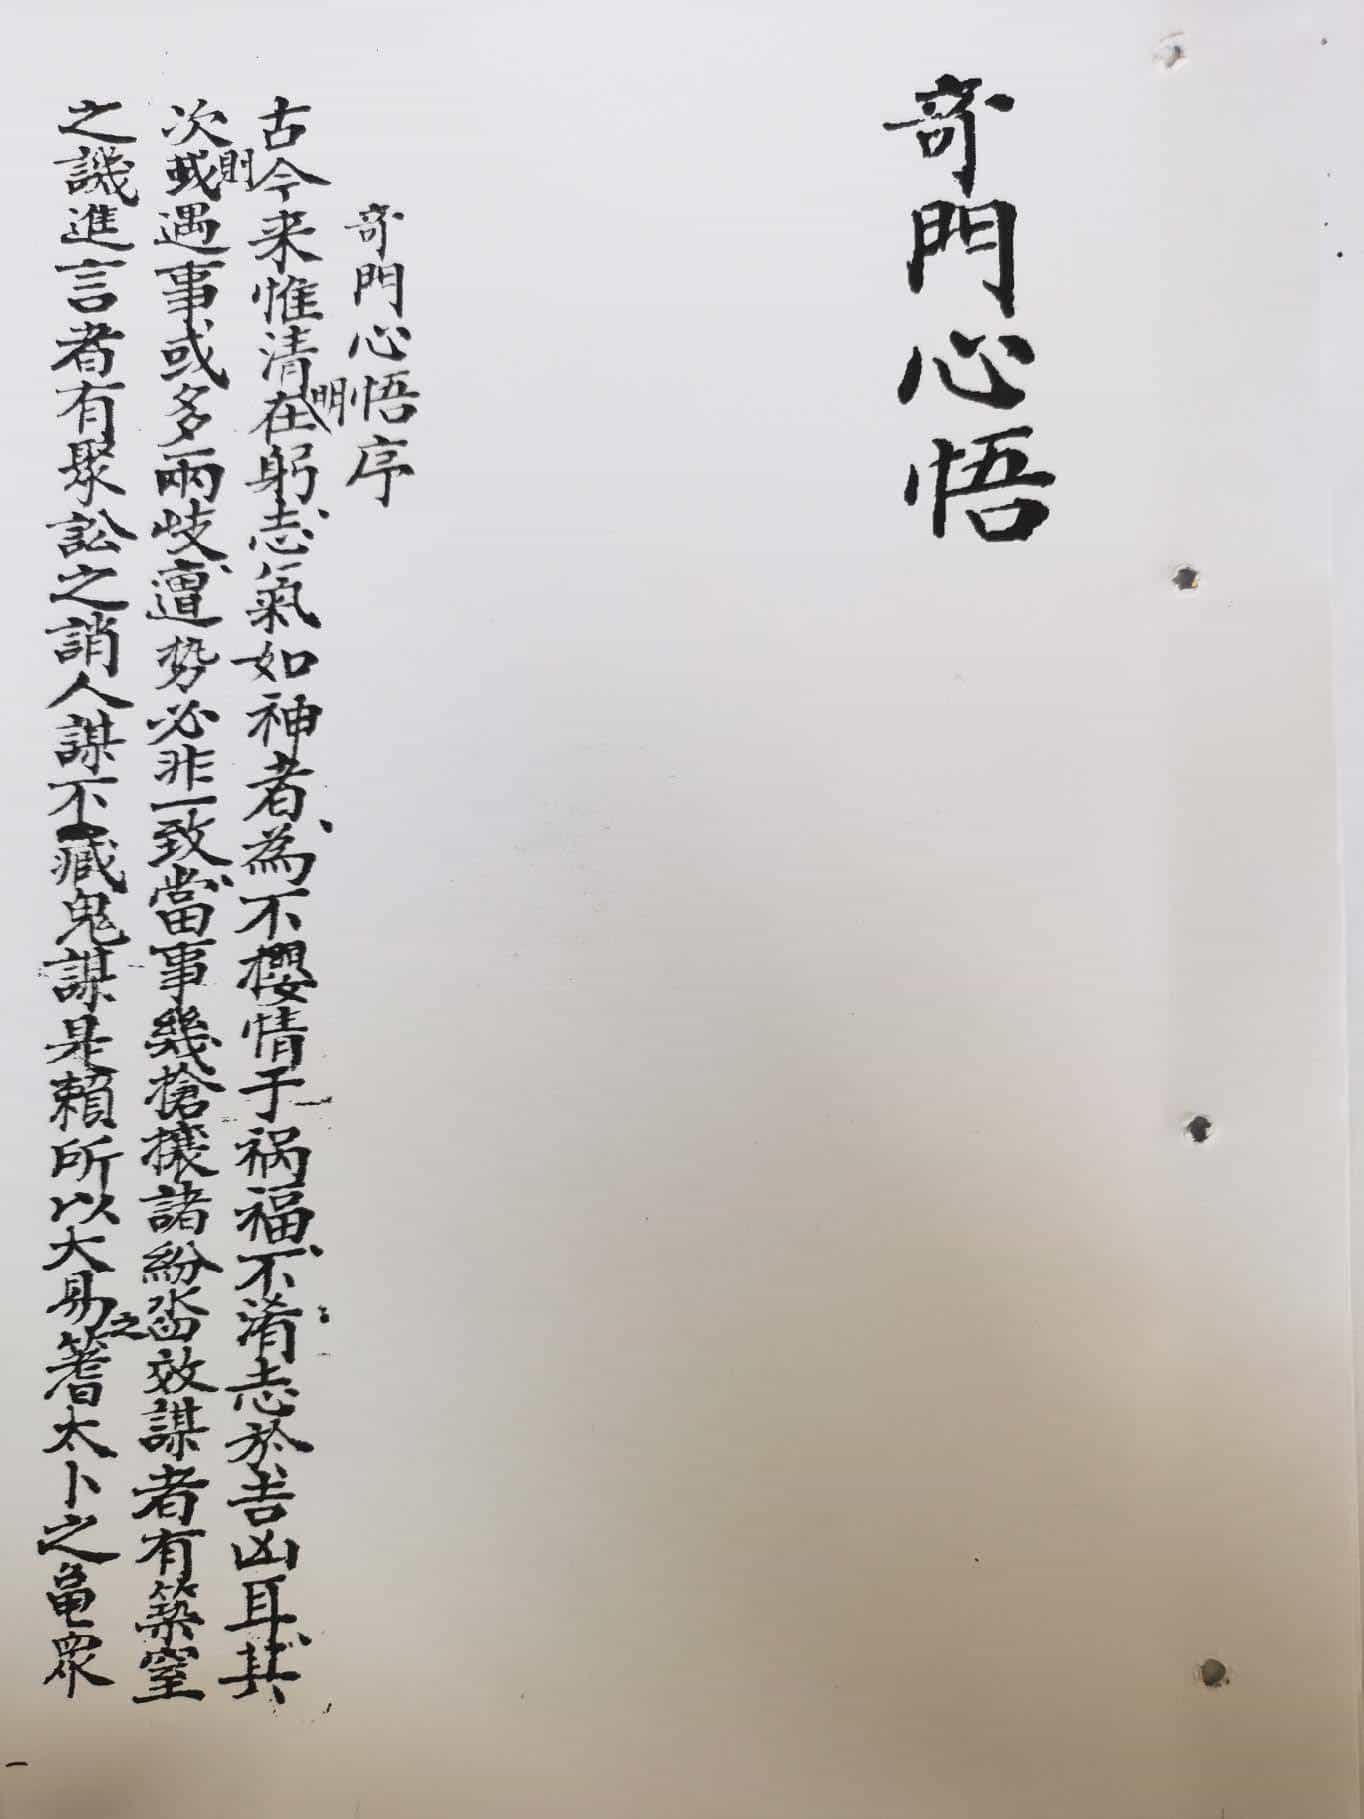 奇門心悟
奇門心悟序
古今来惟清明在躬志氣如神者為不攖情于祸福不淆志於吉凶耳其
次則或遇事或多兩歧遭势必非一致當事幾搶攘諸紛沓效謀者有築室
之譏進言者有聚訟之誚人謀不臧鬼謀是賴所以大易之蓍太卜之亀眾
一